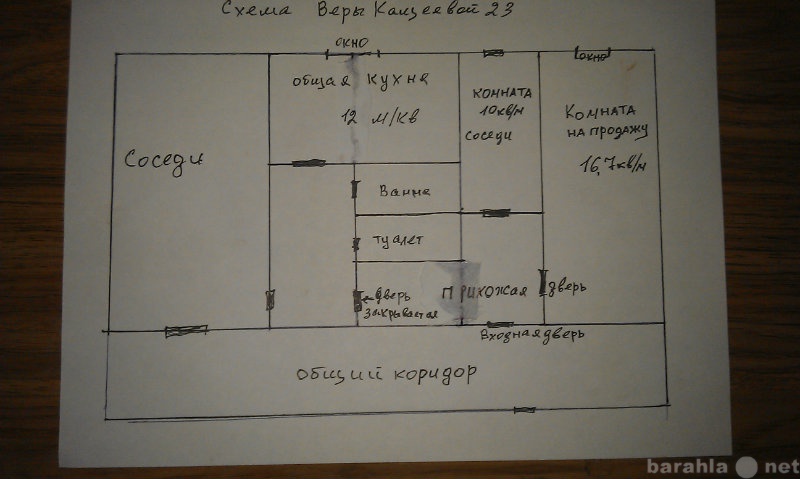 Схема Веры Кащеевой 23
окно
окно
общая кухня
12 м/кв
комната
10кв/м
соседи
Комната
на продажу
16,7кв/м
Соседи
Ванна
туалет
дверь
закрывается
Прихожая
дверь
Входная дверь
общий коридор
barahla net